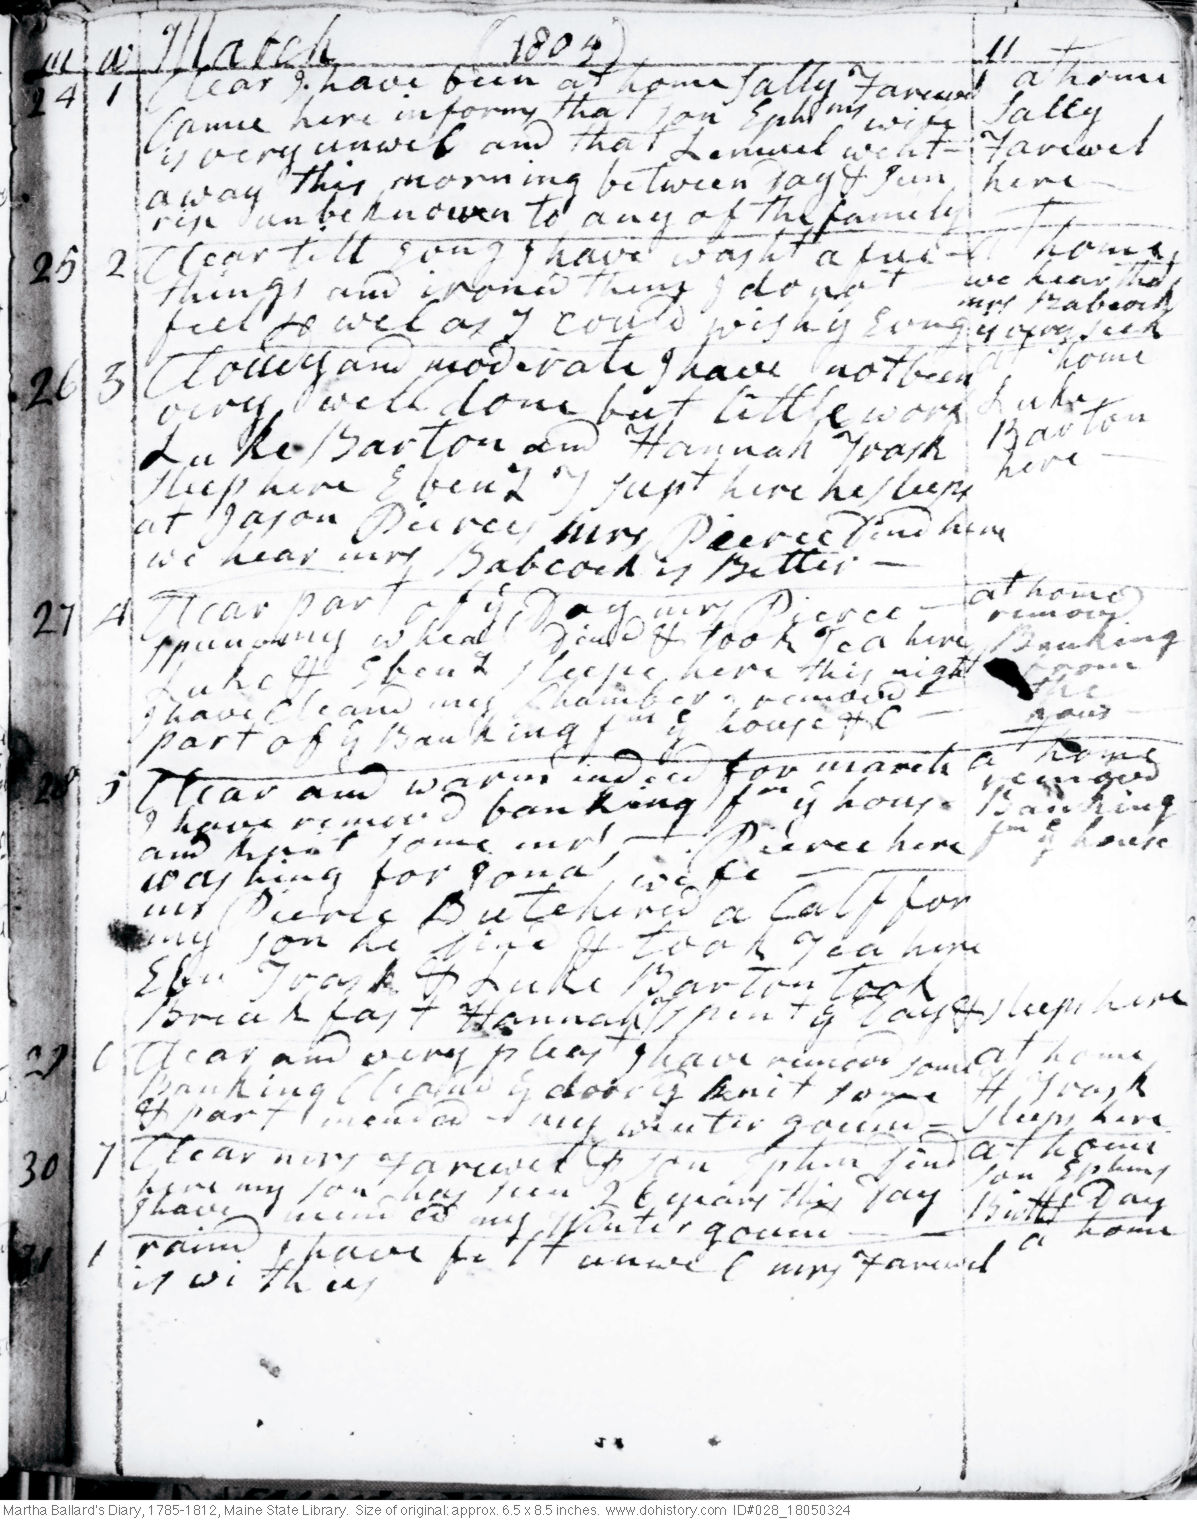 m w March (1804) 11
24 1 Clear I have been at home Sally Farewel at home
Came here informs that son Ephms wife Sally
is very unwel and that Lemuel went Farewel
away this morning between day & sun here
rise unbeknown to any of the family
25 2 Clear till Evng I have washt a few at home
things and ironed them I do not we hear that
feel so wel as I could wish ys Evng mrs Babcock is very sick
26 3 Cloudy and moderate I have not been at home
very well done but little work Luke
Luke Barton and Hannah Trask Barton
sleep here Eben Z T supt here he sleeps here
at Jason Pierces mrs Pierce Dind here
we hear mrs Babcock is Better
27 4 Clear part of ye Day mrs Pierce at home
spun my wheal Dined & took Tea here removd Banking
Luke & Eben Z sleepe here this night from
I have Cleand my Chamber & removed the
part of ye Banking fm ye house &C hous
28 5 Clear and warm indeed for march at home
I have removd banking fm ye house removd
and knit some mrs Pierce here Banking
washing for Jona wife fm ye house
mr Pierce Butchered a Calf for
my son he Dined & took Tea here
Eben Trask & Luke Barton took
Breakfast Hannah spent ye Day & sleeps here
29 6 Clear and very pleast I have removd some at home
Banking Cleand ye door yd knit some H Trask
& part mended my winter gown sleeps here
30 7 Clear mrs Farewel & son Ephm Dind at home
here my son has seen 26 years this Day son Ephms
I have mended my Winter gown Birth Day
31 1 raind I have felt unwel mrs Farewel at home
is with us
Martha Ballard's Diary, 1785-1812, Maine State Library. Size of original: approx. 6.5 x 8.5 inches. www.dohistory.com ID#028_18050324